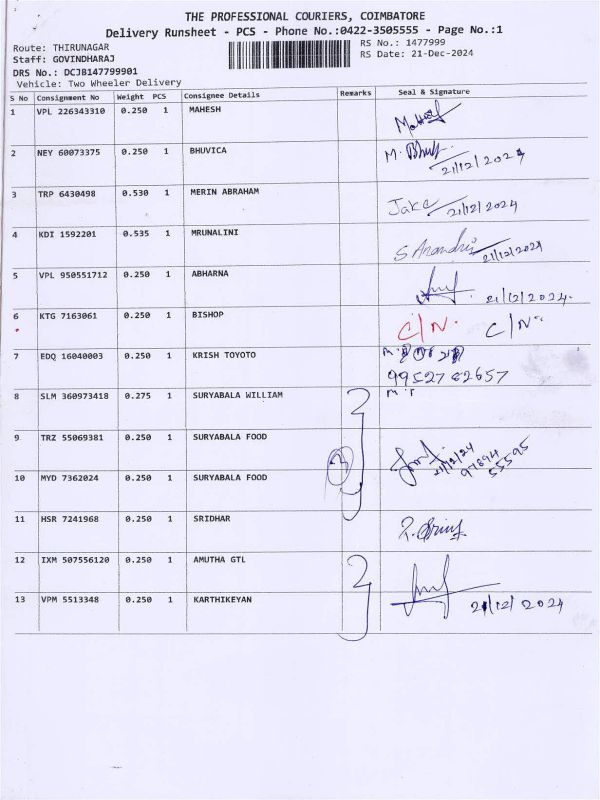 THE PROFESSIONAL COURIERS, COIMBATORE
Delivery Runsheet - PCS - Phone No.:0422-3505555 - Page No.:1
Route: THIRUNAGAR
RS No.: 1477999
Staff: GOVINDHARAJ
RS Date: 21-Dec-2024
DRS No.: DCJB147799901
Vehicle: Two Wheeler Delivery
S No Consignment No Weight PCS Consignee Details Remarks Seal & Signature
1 VPL 226343310 0.250 1 MAHESH
2 NEY 60073375 0.250 1 BHUVICA 21/12/2024
3 TRP 6430498 0.530 1 MERIN ABRAHAM Jake 21/12/2024
4 KDI 1592201 0.535 1 MRUNALINI 21/12/2024
5 VPL 950551712 0.250 1 ABHARNA 21/12/2024
6 KTG 7163061 0.250 1 BISHOP C/N. C/N.
7 EDQ 16040003 0.250 1 KRISH TOYOTO
9952782657
8 SLM 360973418 0.275 1 SURYABALA WILLIAM
9 TRZ 55069381 0.250 1 SURYABALA FOOD 21/12/24
3 97894
55595
10 MYD 7362024 0.250 1 SURYABALA FOOD
11 HSR 7241968 0.250 1 SRIDHAR
12 IXM 507556120 0.250 1 AMUTHA GTL
13 VPM 5513348 0.250 1 KARTHIKEYAN 21/12/2024